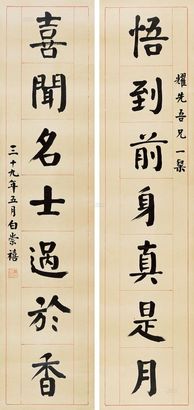 耀先吾兄一粲
悟到前身真是月
喜聞名士過於香
三十九年五月白崇禧